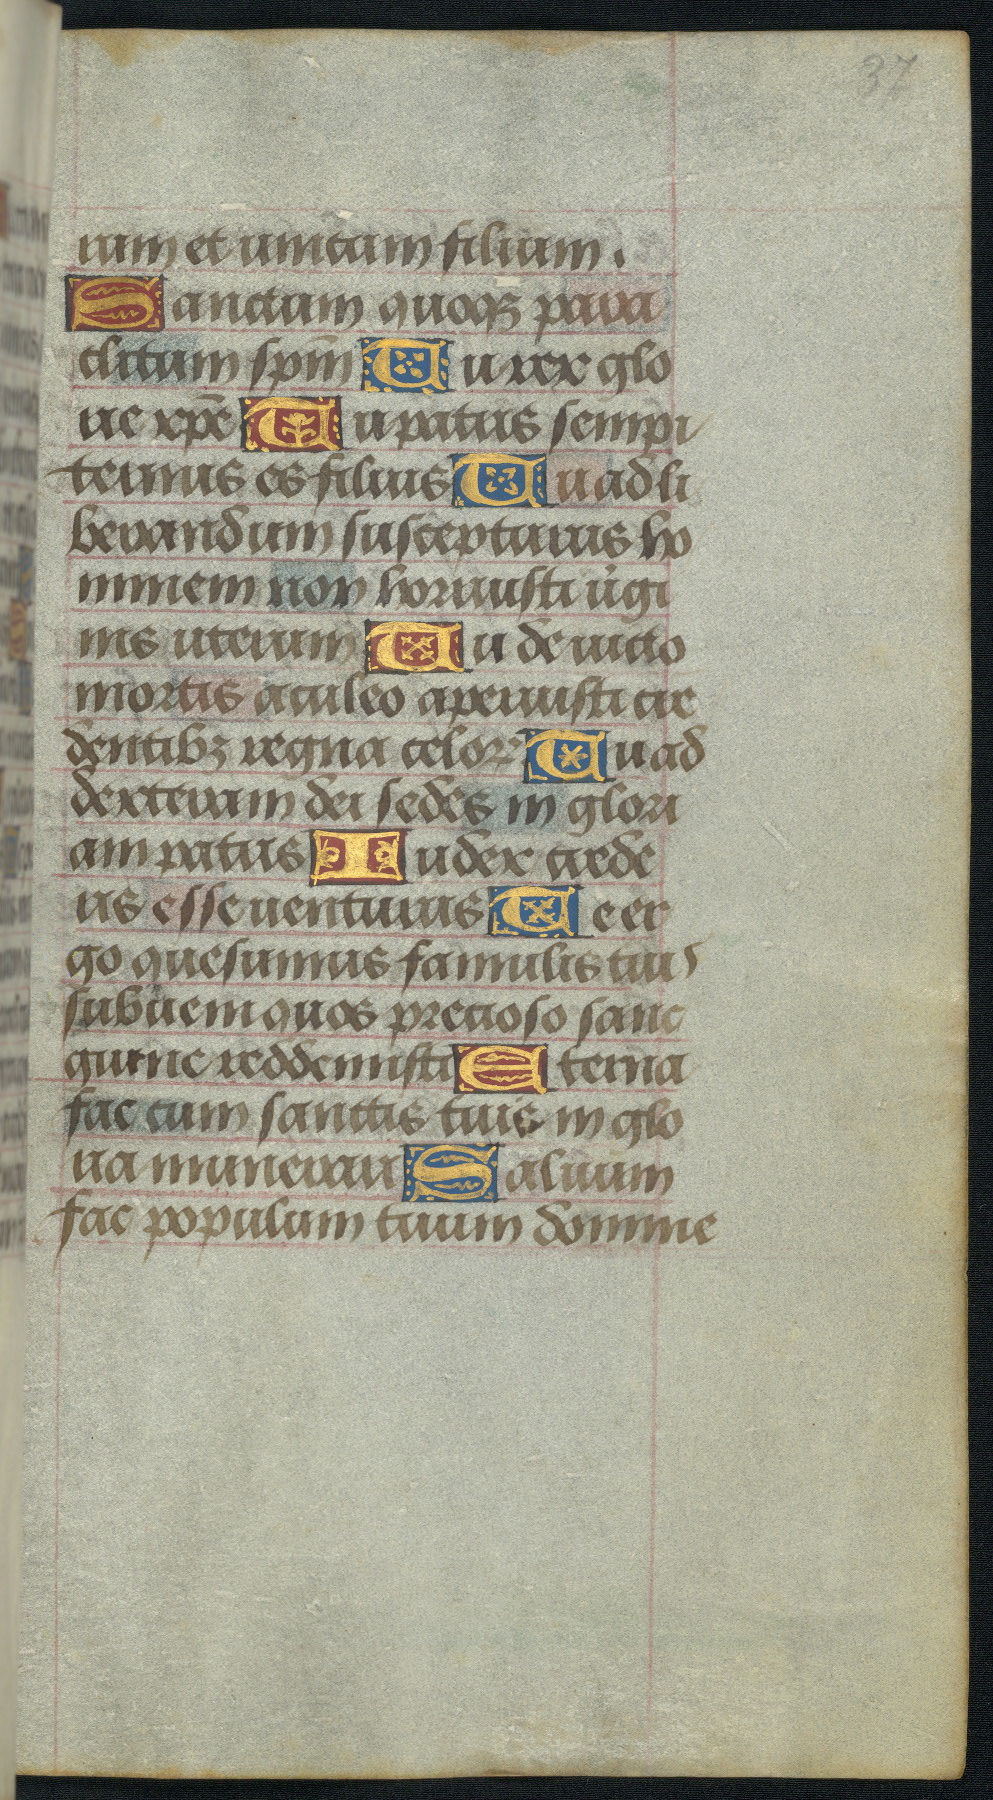 37
rum et unicum filium.
Sanctum quoqꝫ para
clitum spm̄ Tu rex glo
rie xpē Tu patris sempi
ternus es filius Tu ad li
berandum suscepturus ho
minem non horruisti v̄gi
nis uterum Tu devicto
mortis aculeo aperuisti cre
dentibꝫ regna celoꝝ Tu ad
dexteram dei sedes in glori
am patris Iudex crede
ris esse venturus Te er
go quesumus famulis tuis
subveni quos precioso sanc
guine reddemisti Eterna
fac cum sanctis tuis in glo
ria munerari Salvum
fac populum tuum domine